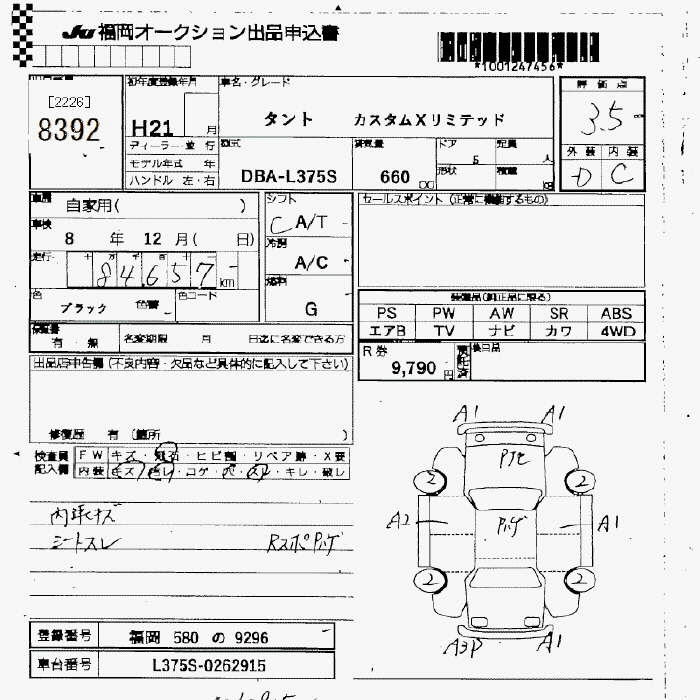 JU 福岡オークション出品申込書
*1001247456*
[2226]
8392
初年度登録年月
H21 月
車名・グレード
タント カスタムXリミテッド
評価点
3.5
ディーラー・並行
モデル年式 年
ハンドル 左・右
型式
DBA-L375S
排気量
660 cc
ドア
5
定員
人
形状
積載
kg
外装 内装
D C
車歴
自家用( )
車検
8 年 12 月( 日)
走行
84,657 km
色
ブラック
色替
色コード
シフト
C A/T
冷房
A/C
燃料
G
セールスポイント (正常に機能するもの)
装備品(純正品に限る)
PS PW AW SR ABS
エアB TV ナビ カワ 4WD
保証書
有・無
名変期限 月 日迄に名変できる方
R券
9,790 円
預託済
後日品
出品店申告欄(不良内容・欠品など具体的に記入して下さい)
修復歴 有 (箇所 )
検査員記入欄
FW キズ・飛石・ヒビ割・リペア跡・X要
内装 キズ・色レ・コゲ・穴・スレ・キレ・破レ
内張キズ
シートスレ
RスポPハゲ
A1 A1
Pハゲ
A2 A1
2 2
2 2
A3P A1
登録番号
福岡 580 の 9296
車台番号
L375S-0262915